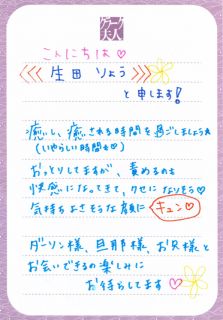 グラーグ夫人
こんにちは♡
生田 りょう
と申します!
癒し、癒される時間を過ごしましょうね
(いやらしい時間も♡)
おっとりしてますが、責めるのも
快感になってきて、クセになりそう♡
気持ちよさそうな顔にキュン♡
ダーリン様、旦那様、お兄様と
お会いできるの楽しみに
お待ちしてます♡